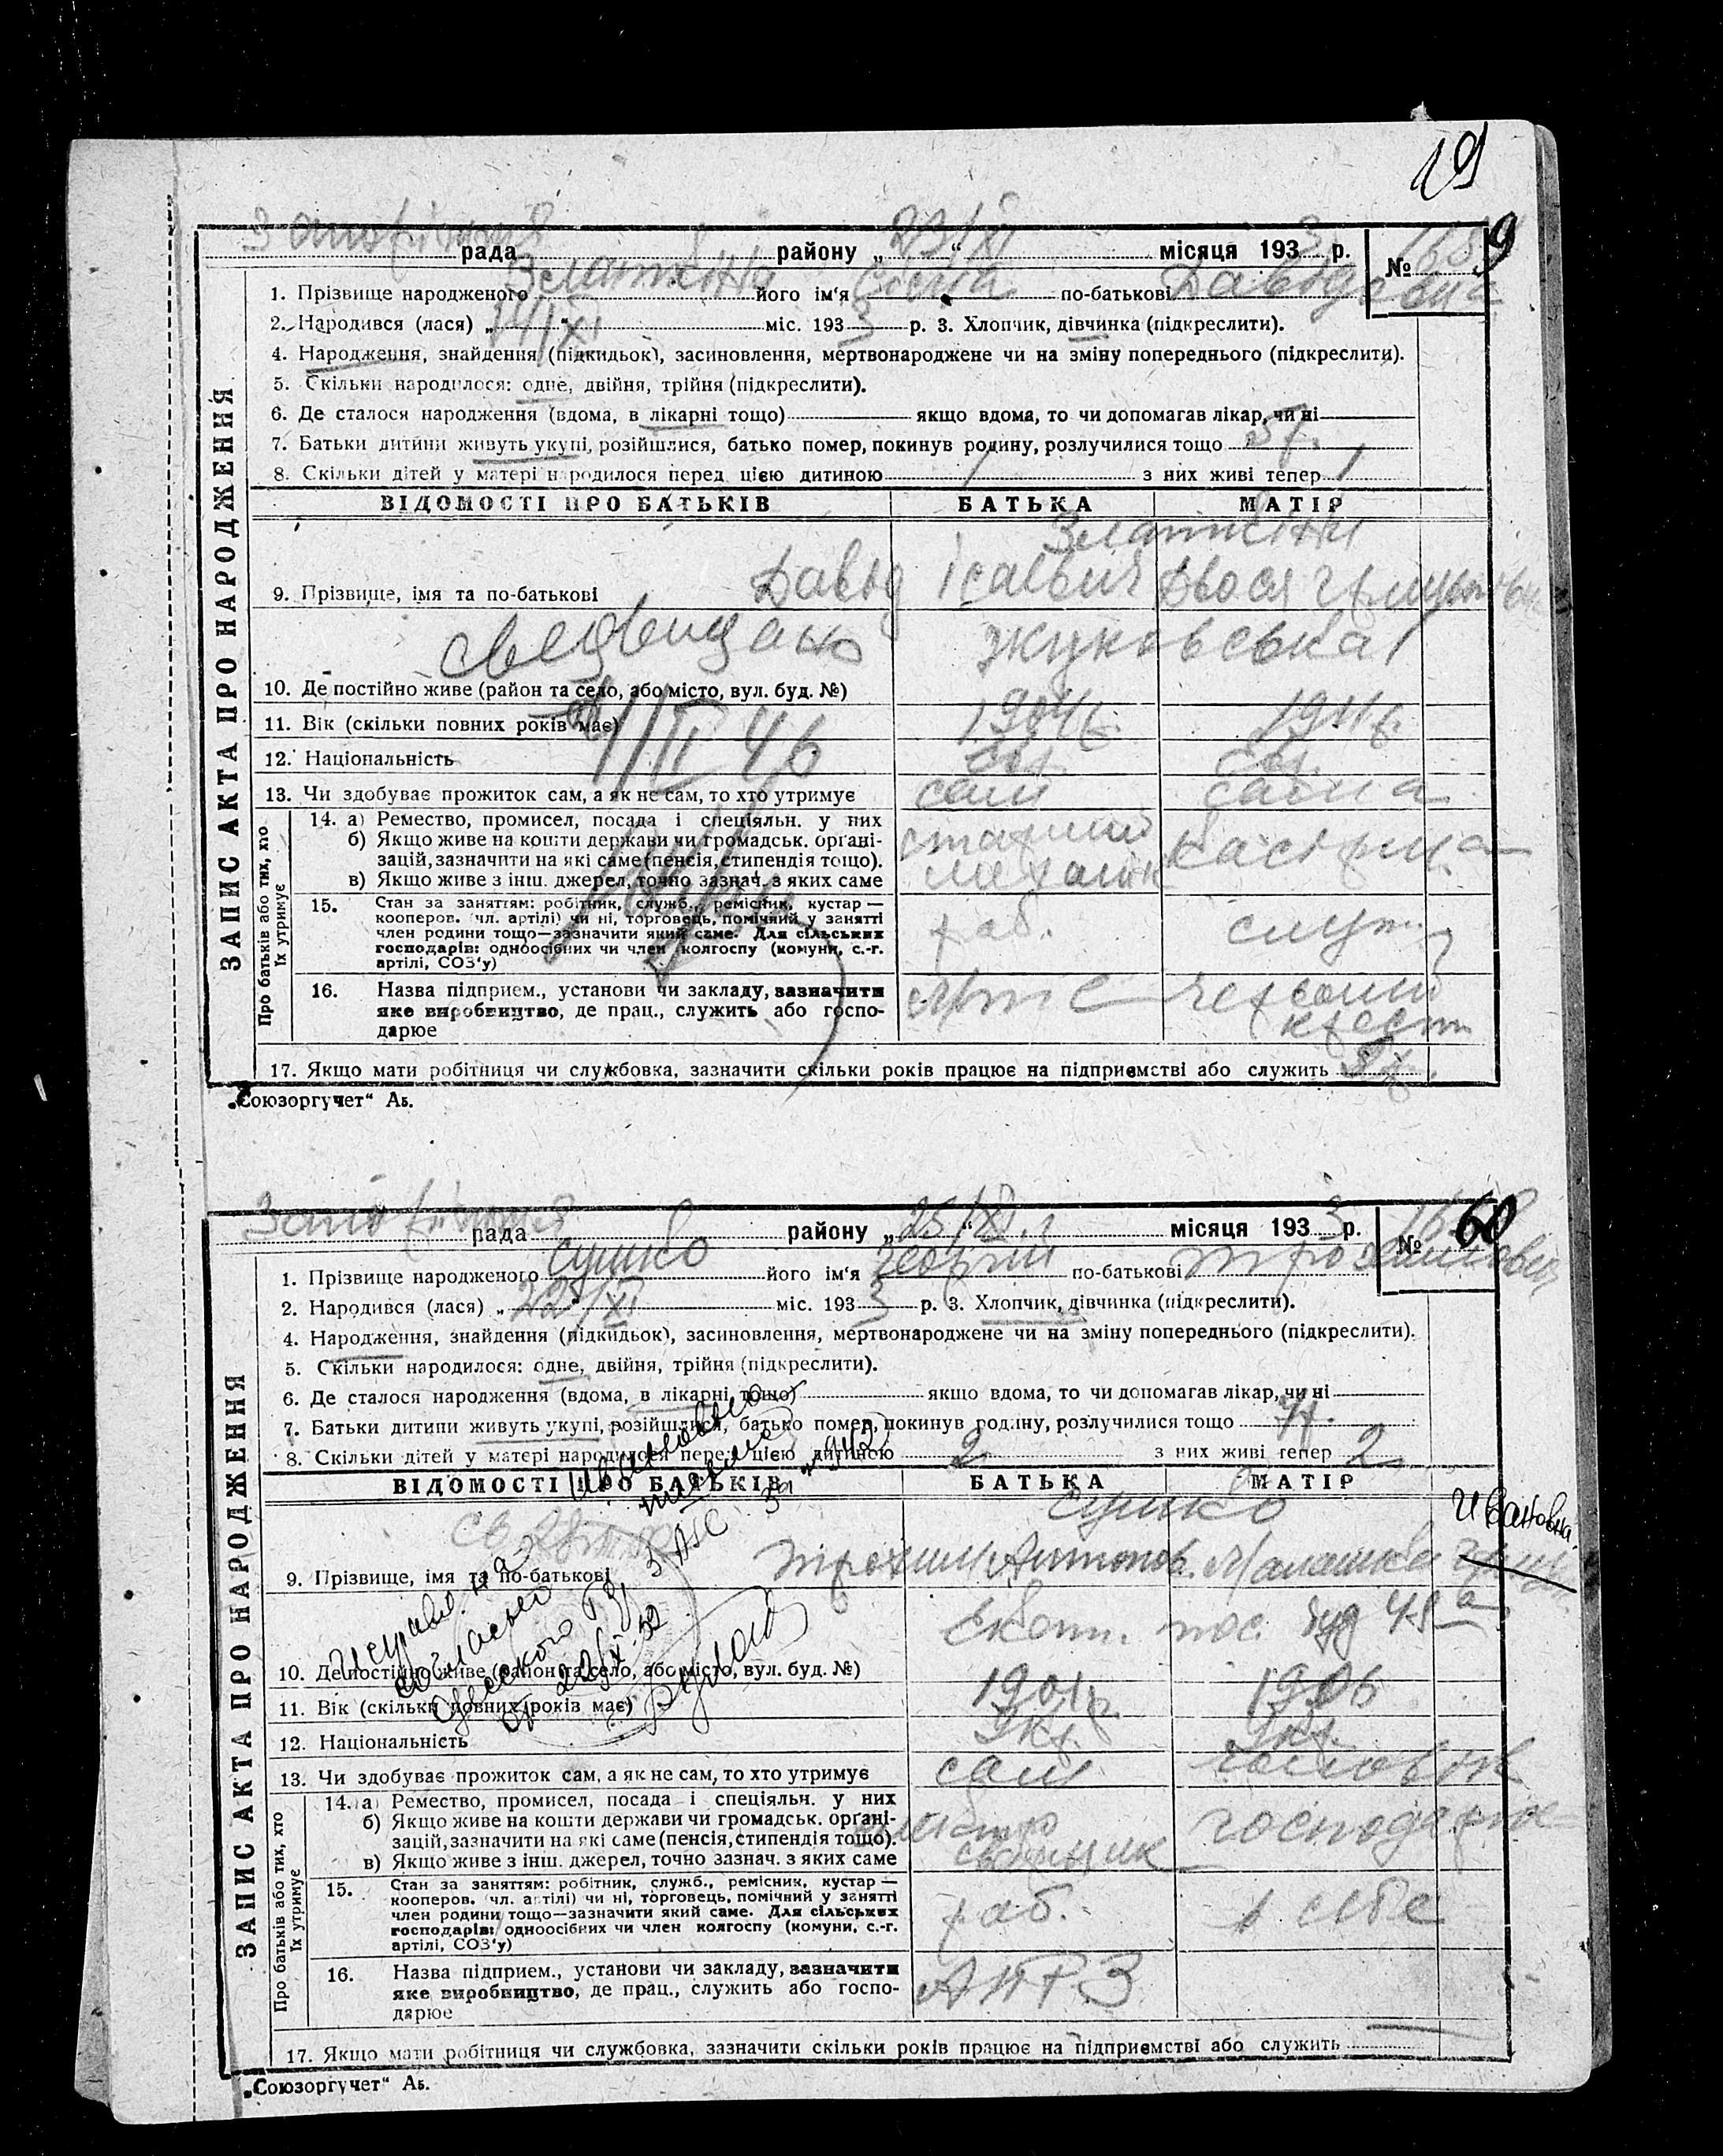 19
Запоріжжя рада району „23/XI“ місяця 1933 р. № 9
1. Прізвище народженого Златкіна його ім‘я по-батькові Давидовна
2. Народився (лася) „14/XI“ міс. 1933 р. 3. Хлопчик, дівчинка (підкреслити).
4. Народження, знайдення (підкидьок), засиновлення, мертвонароджене чи на зміну попереднього (підкреслити).
5. Скільки народилося: одне, двійня, трійня (підкреслити).
6. Де сталося народження (вдома, в лікарні тощо) якщо вдома, то чи допомагав лікар, чи ні
7. Батьки дитини живуть укупі, розійшлися, батько помер, покинув родину, розлучилися тощо 5 р.
8. Скільки дітей у матері народилося перед цією дитиною 1 з них живі тепер 1
ЗАПИС АКТА ПРО НАРОДЖЕННЯ
ВІДОМОСТІ ПРО БАТЬКІВ БАТЬКА МАТІР
Златкіни
9. Прізвище, імя та по-батькові Давыд Двося
Жуковська 1
10. Де постійно живе (район та село, або місто, вул. буд. №)
11. Вік (скільки повних років має) 1904 р. 1911 р.
II 46
12. Національність Євр. Євр.
13. Чи здобуває прожиток сам, а як не сам, то хто утримує сам сама
Про батьків або тих, хто їх утримує
14. а) Ремество, промисел, посада і спеціяльн. у них
б) Якщо живе на кошти держави чи громадськ. органі-
зацій, зазначити на які саме (пенсія, стипендія тощо). старший касірша
в) Якщо живе з інш. джерел, точно зазнач. з яких саме механік
15. Стан за заняттям: робітник, служб., ремісник, кустар —
кооперов. (чл. артілі) чи ні, торговець, помічний у занятті
член родини тощо—зазначити який саме. Для сільських раб. служ.
господарів: одноосібних чи член колгоспу (комуни, с.-г.
артілі, СОЗ‘у)
16. Назва підприєм., установи чи закладу, зазначити
яке виробництво, де прац., служить або госпо-
дарює
17. Якщо мати робітниця чи службовка, зазначити скільки років працює на підприємстві або служить
„Союзоргучет“ Аб.
Запоріжжя рада району „25/XI“ місяця 1933 р. № 60
1. Прізвище народженого Сушко його ім‘я Георгій по-батькові Трохимович
2. Народився (лася) „22/XI“ міс. 1933 р. 3. Хлопчик, дівчинка (підкреслити).
4. Народження, знайдення (підкидьок), засиновлення, мертвонароджене чи на зміну попереднього (підкреслити).
5. Скільки народилося: одне, двійня, трійня (підкреслити).
6. Де сталося народження (вдома, в лікарні тощо) якщо вдома, то чи допомагав лікар, чи ні
7. Батьки дитини живуть укупі, розійшлися, батько помер, покинув родину, розлучилися тощо
8. Скільки дітей у матері народилося перед цією дитиною 2 з них живі тепер 2
ЗАПИС АКТА ПРО НАРОДЖЕННЯ
ВІДОМОСТІ ПРО БАТЬКІВ БАТЬКА МАТІР
Сушко
Ивановна
9. Прізвище, імя та по-батькові Трохим Антонов. Малашка
пос. буд 48
10. Де постійно живе (район та село, або місто, вул. буд. №)
11. Вік (скільки повних років має) 1901 р. 1906
12. Національність Укр. Укр.
13. Чи здобуває прожиток сам, а як не сам, то хто утримує сам чоловік
Про батьків або тих, хто їх утримує
14. а) Ремество, промисел, посада і спеціяльн. у них
б) Якщо живе на кошти держави чи громадськ. органі-
зацій, зазначити на які саме (пенсія, стипендія тощо). електро господарює
в) Якщо живе з інш. джерел, точно зазнач. з яких саме
15. Стан за заняттям: робітник, служб., ремісник, кустар —
кооперов. (чл. артілі) чи ні, торговець, помічний у занятті
член родини тощо—зазначити який саме. Для сільських раб.
господарів: одноосібних чи член колгоспу (комуни, с.-г.
артілі, СОЗ‘у)
16. Назва підприєм., установи чи закладу, зазначити
яке виробництво, де прац., служить або госпо-
дарює
17. Якщо мати робітниця чи службовка, зазначити скільки років працює на підприємстві або служить
„Союзоргучет“ Аб.